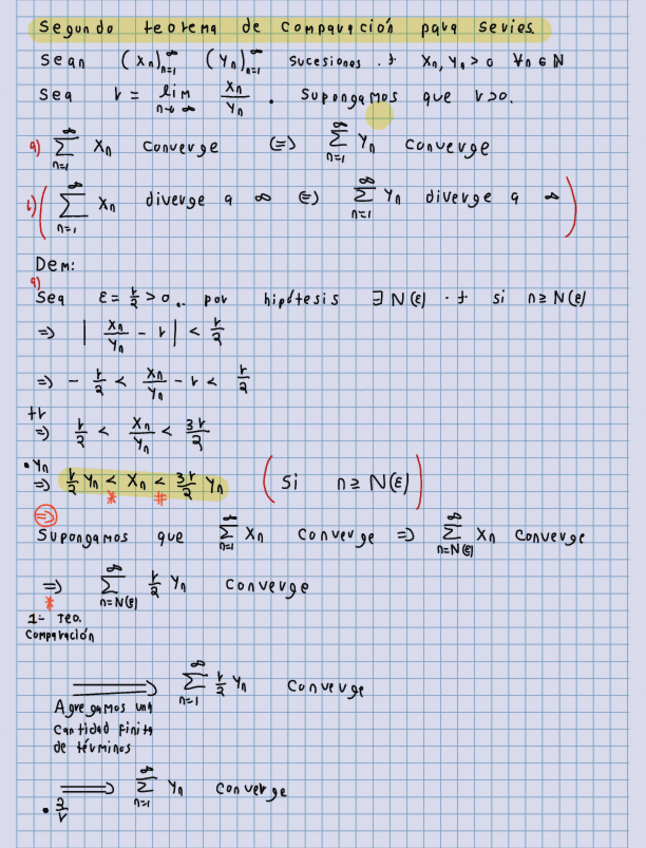 Segundo teorema de comparación para series.
Sean (Xn)_{n=1}^∞ (Yn)_{n=1}^∞ sucesiones .t Xn, Yn > 0 ∀n ∈ N
Sea r = lim_{n→∞} Xn/Yn . Supongamos que r>0.
a) ∑_{n=1}^∞ Xn converge (=) ∑_{n=1}^∞ Yn converge
b) ( ∑_{n=1}^∞ Xn diverge a ∞ (=) ∑_{n=1}^∞ Yn diverge a ∞ )
Dem:
a)
Sea ε = r/2 > 0 .. por hipótesis ∃ N(ε) .t si n ≥ N(ε)
=) | Xn/Yn - r | < r/2
=) - r/2 < Xn/Yn - r < r/2
+r
=) r/2 < Xn/Yn < 3r/2
•Yn
=) r/2 Yn < Xn < 3r/2 Yn ( Si n ≥ N(ε) )
* #
=)
Supongamos que ∑_{n=1}^∞ Xn converge =) ∑_{n=N(ε)}^∞ Xn converge
=) ∑_{n=N(ε)}^∞ r/2 Yn converge
*
1- Teo.
Comparación
==) ∑_{n=1}^∞ r/2 Yn converge
Agregamos una
cantidad finita
de términos
==) ∑_{n=1}^∞ Yn converge
• 2/r